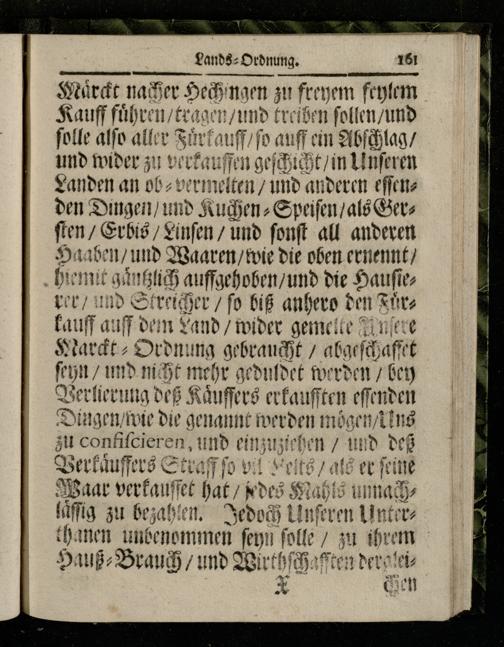 Lands-Ordnung. 161
Märckt nacher Hechingen zu freyem feylem
Kauff führen/tragen/und treiben sollen/und
solle also aller Fürkauff/so auff ein Abschlag/
und wider zu verkauffen geschicht/in Unseren
Landen an ob-vermelten/und anderen essen-
den Dingen/und Kuchen-Speisen/als Ger-
sten/Erbis/Linsen/und sonst all anderen
Haaben/und Waaren/wie die oben ernennt/
hiemit gäntzlich auffgehoben/und die Hausie-
rer/und Streicher/so biß anhero den Für-
kauff auff dem Land/wider gemelte Unsere
Marckt-Ordnung gebraucht/abgeschaffet
seyn/und nicht mehr geduldet werden/bey
Verlierung deß Käuffers erkaufften essenden
Dingen/wie die genannt werden mögen/Uns
zu confiscieren, und einzuziehen/und deß
Verkäuffers Straff so vil Gelts/als er seine
Waar verkauffet hat/jedes Mahls unnach-
lässig zu bezahlen. Jedoch Unseren Unter-
thanen unbenommen seyn solle/zu ihrem
Hauß-Brauch/und Wirthschafften derglei-
X chen